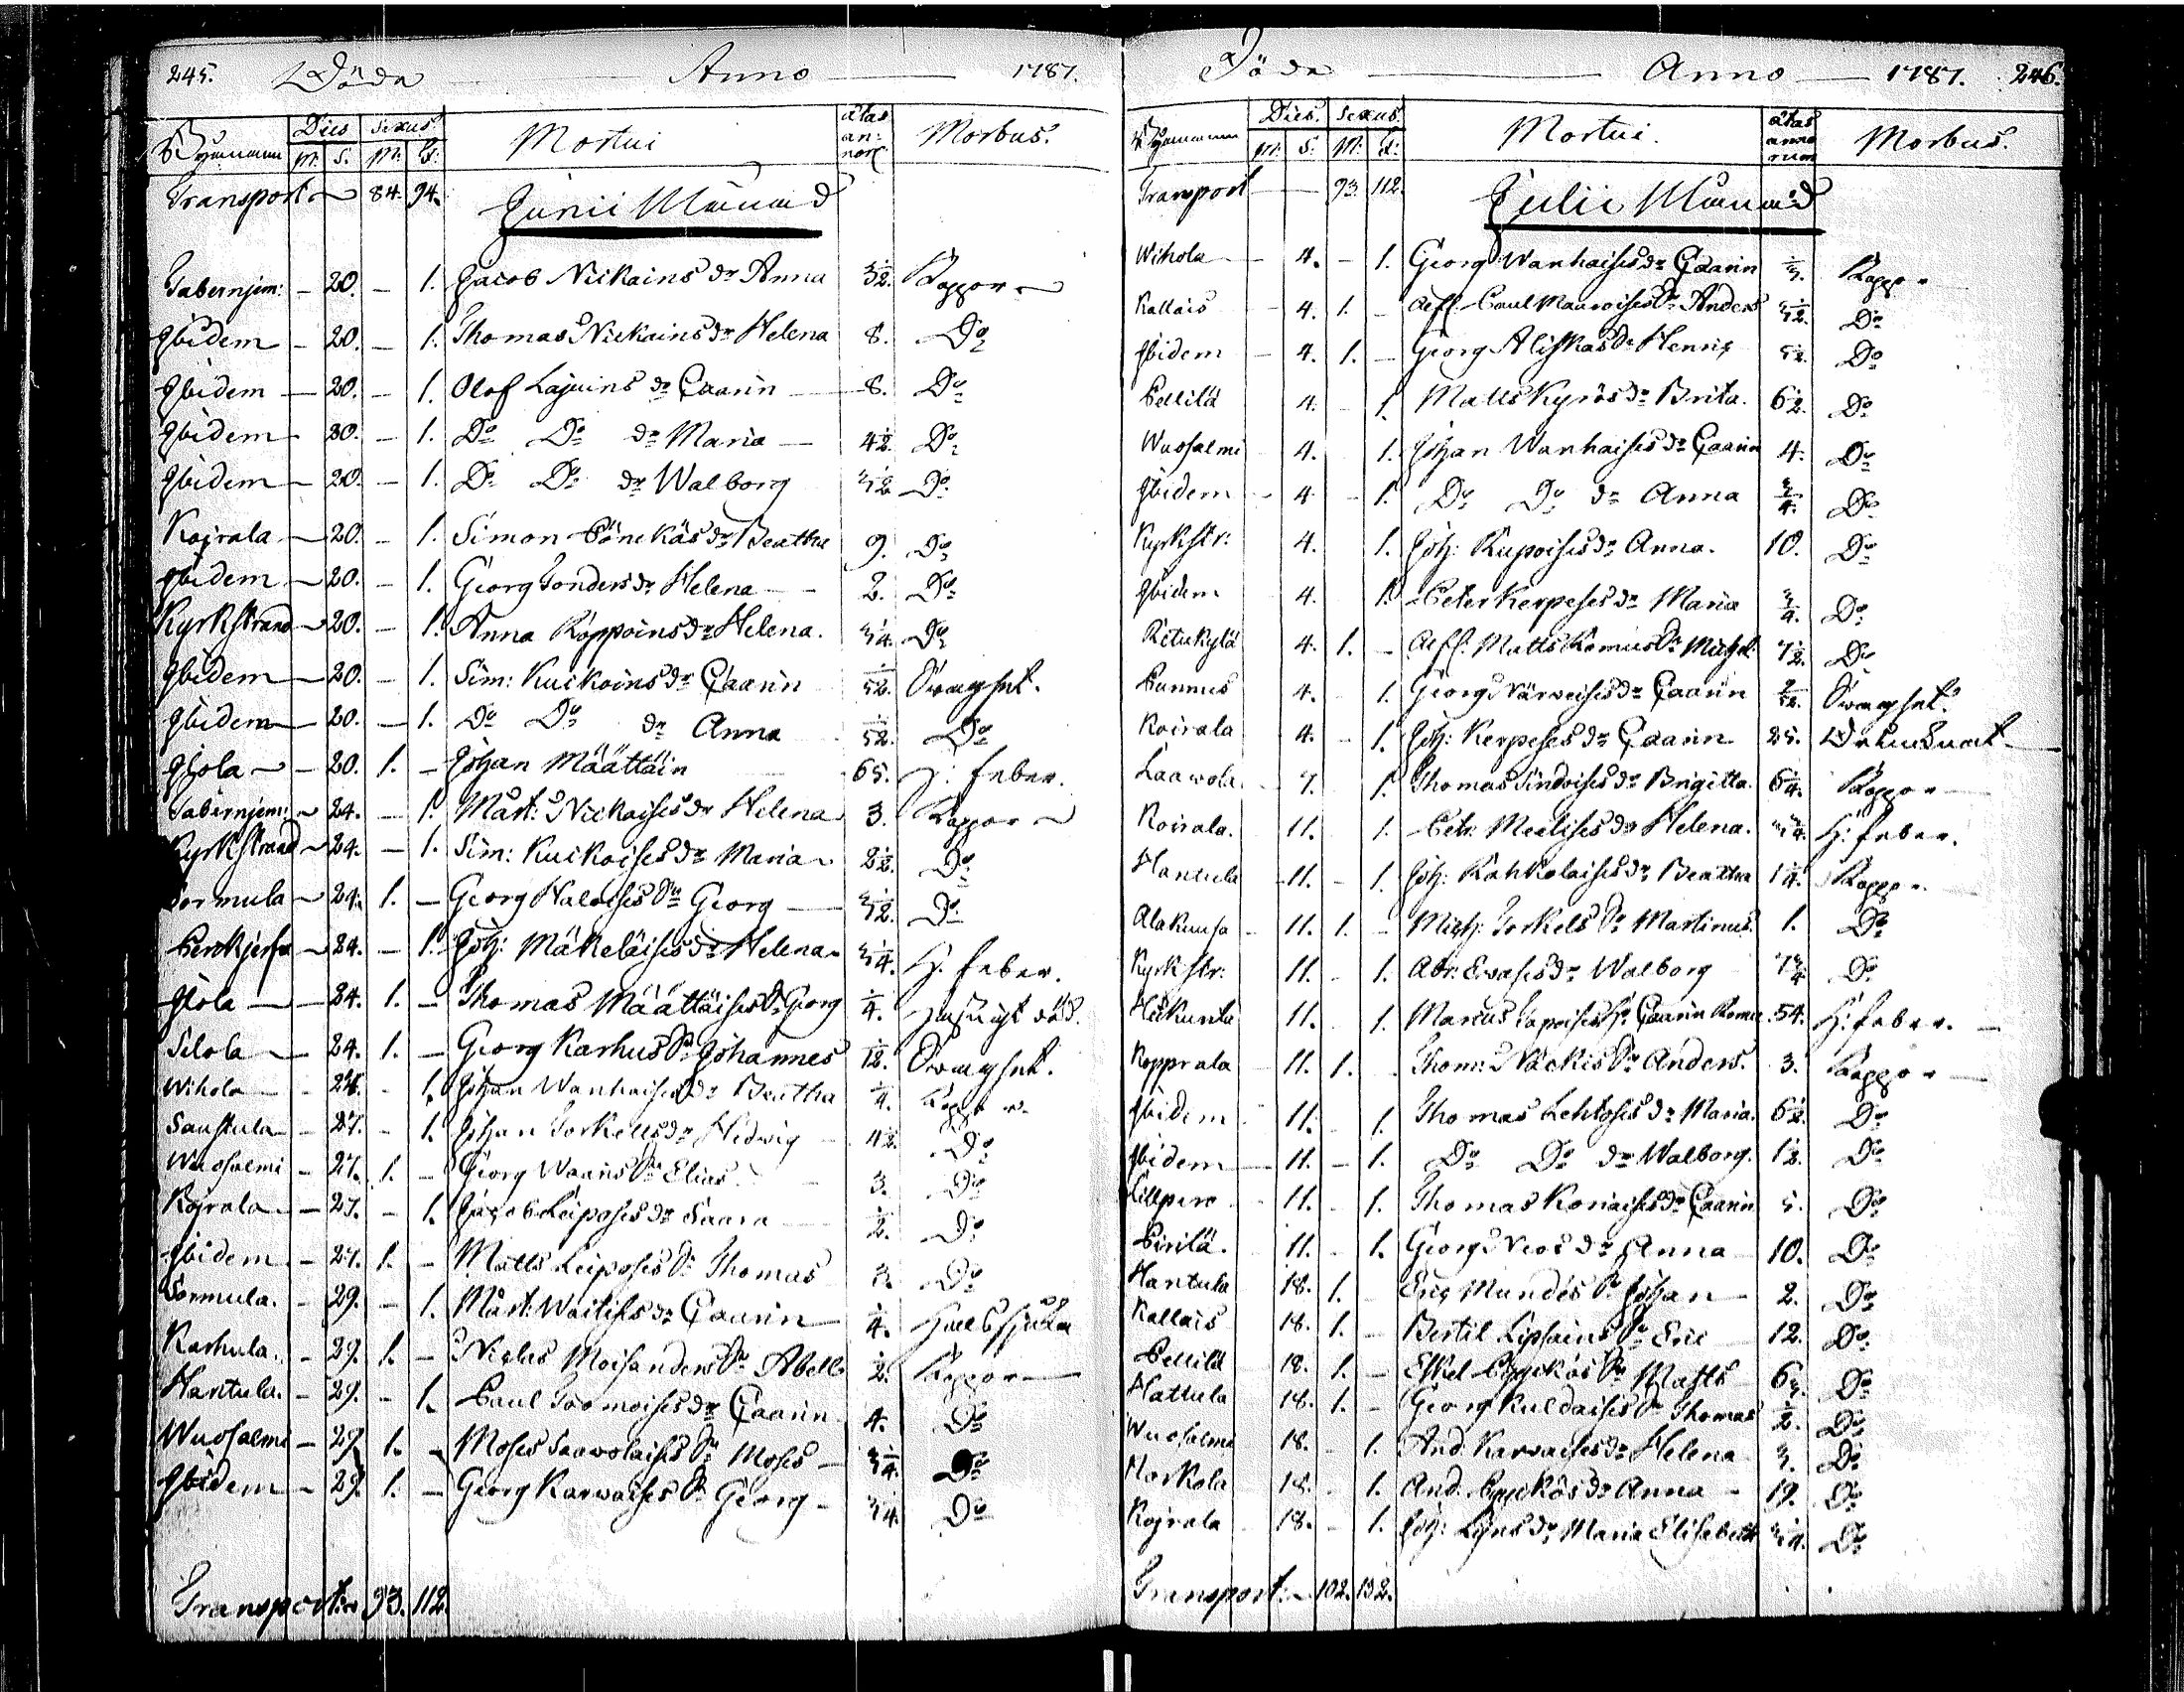 245. Döda Anno 1787.
Byarnamn Dies Sexus. Mortui ætas annor: Morbus.
M: S: M: Q:
Transport 84. 94. Junii Månad
Tabernjem: 20. 1. Jacob Nickains dr Anna 3½. Koppor
Ibidem 20. 1. Thomas Nickains dr Helena 8. Do
Ibidem 20. 1. Olof Lajuins dr Caarin 8. Do
Ibidem 20. 1. Do Do dr Maria 4½. Do
Ibidem 20. 1. Do Do dr Walborg Do
Kojrala 20. 1. Simon Pönckäs dr Beatha 9. Do
Ibidem 20. 1. Georg Tonders dr Helena 2. Do
Kyrkstrand 20. 1. Anna Roppoins dr Helena. Do
Ibidem 20. 1. Sim: Kuikoins dr Caarin 1/52. Swaghet.
Ibidem 20. 1. Do Do dr Anna 1/52. Do
Ijola 20. 1. Johan Määttäin 65. H: feber.
Tabernjem: 24. 1. Mårt: Nickaises dr Helena 3. Koppor
Kyrkstrand 24. 1. Sim: Kuikoises dr Maria 2½. Do
Sormula 24. 1. Georg Haloises Sn Georg Do
Perckjerfwi 24. 1. Joh: Mäkeläises dr Helena H. feber.
Ijola 24. 1. Thomas Määttäises Sn Georg ¼. Hastigt död.
Silola 24. 1. Georg Karhus Sn Johannes 1/12. Swaghet.
Wihola 24. 1. Johan Wanhaises dr Beatha ¼. Koppor
Saustula 27. 1. Johan Torkells dr Hedwig 4½. Do
Wuosalmi 27. 1. Georg Waains Sn Elias 3. Do
Kojrala 27. 1. Jacob Leiposes dr Saara ½. Do
Ibidem 27. 1. Matts Leiposes Sn Thomas Do
Sormula. 29. 1. Mårt: Waitises dr Caarin ¼. Halssjuka
Karhula. 29. 1. Niclas Moisanders Sn Abell ½. Koppor
Hantula. 29. 1. Paul Tiomoises dr Caarin 4. Do
Wuosalmi 29. 1. Moses Saawolaises Sn Moses Do
Ibidem 29. 1. Georg Karwaises Sn Georg Do
Transport: 93. 112.
Döda Anno 1787. 246.
Byarnamn Dies. Sexus. Mortui. ætas annorum Morbus.
M: S: M: Q:
Transport 93. 112. Julii Månad
Wihola 4. 1. Georg Wanhaises dr Caarin Koppor
Kallais 4. 1. Aff. Paul Maaroises Sn Anders Do
Ibidem 4. 1. Georg Aliskas Sn Henric Do
Pellilä 4. 1. Matts Kyrös dr Brita. 6½. Do
Wuosalmi 4. 1. Johan Wanhaises dr Caarin 4. Do
Ibidem 4. 1. Do Do dr Anna ¾. Do
Kyrkstr: 4. 1. Joh: Kupoises dr Anna. 10. Do
Ibidem 4. 1. Peter Kerpeses dr Maria ¾. Do
Ritukylä 4. 1. Aff. Matts Komius Sn Michel Do
Punnus 4. 1. Georg Närweises dr Caarin Swaghet.
Koirala 4. 1. Joh: Kerpeses dr Caarin 25.
Laawola. 7. 1. Thomas Sindoises dr Brigitta. 6¼. Koppor
Koirala. 11. 1. Petr: Meelises dr Helena. H: feber.
Hantula 11. 1. Joh: Kähkolaises dr Beatha 1¼. Koppor
Alakuusa 11. 1. Mich: Torkels Sn Martinus. 1. Do
Kyrkstr: 11. 1. Abr: Ewases dr Walborg Do
Heikurila 11. 1. Marcus Lapoises Caarin 54. H: feber.
Kopprala 11. 1. Thom: Näckis Sn Anders. 3. Koppor
Ibidem 11. 1. Thomas Lehtoses dr Maria. 6½. Do
Ibidem 11. 1. Do Do dr Walborg. 1½. Do
Killpero 11. 1. Thomas Koriaises dr Caarin 5. Do
Pirilä. 11. 1. Georg Neos dr Anna 10. Do
Hantula 18. 1. Eric Mundes Sn Johan 2. Do
Kallais 18. 1. Bertil Lipsains Sn Eric 12. Do
Pellilä 18. 1. Eskel Pyyckös Sn Matts Do
Hattula 18. 1. Georg Kuldaises Sn Thomas ½. Do
Wuosalmi 18. 1. And: Karwaises dr Helena 3. Do
Norkola 18. 1. And. Pyyckös dr Anna 19. Do
Kojrala 18. 1. Joh: Lijns dr Maria Elisabeth Do
Transport: 102. 132.